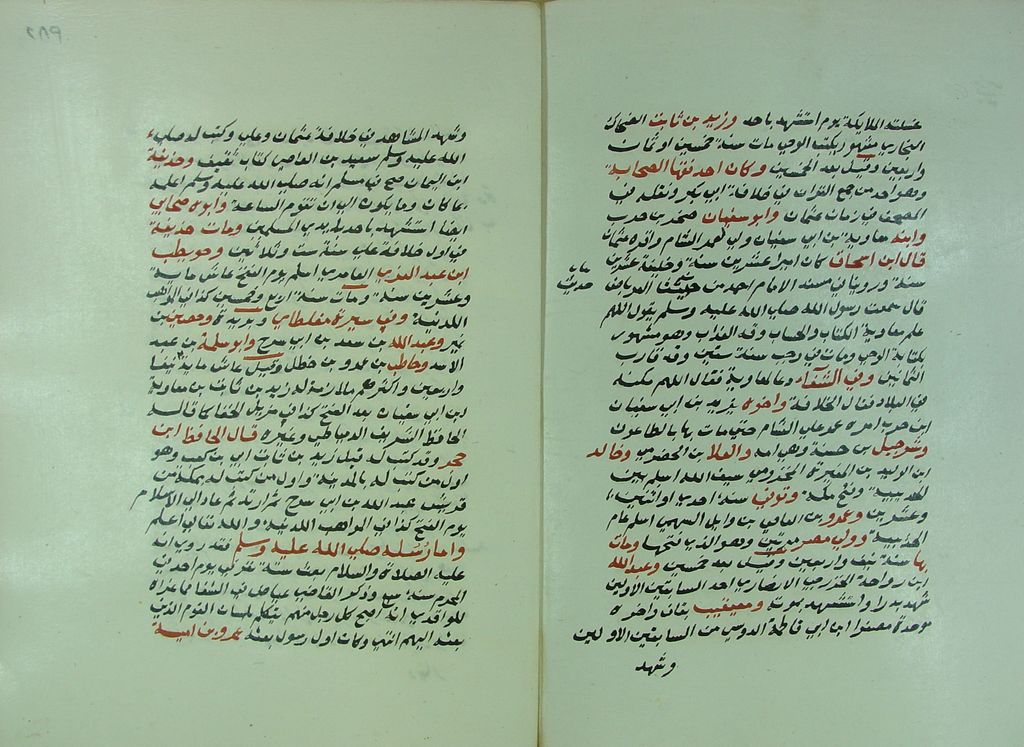 غسلته الملايكة يوم استشهد باحد وزيد بن ثابت الضحاك
النجاري مشهور يكتب الوحي مات سنة خمسين او ثمان
واربعين وقيل بعد الخمسين وكان احد فقها الصحابة
وهو احد من جمع القران في خلافة ابي بكر ونقله في
المصحف في زمان عثمان وابو سفيان صخر بن حرب
وابنه معاوية بن ابي سفيان ولي لعمر الشام واقره عثمان
قال ابن اسحاق كان اميرا عشرين سنة وخليفة عشرين
سنة وروينا في مسند الامام احمد من حديث العرباض
قال سمعت رسول الله صلى الله عليه وسلم يقول اللهم
علم معاوية الكتاب والحساب وقه العذاب وهو مشهور
بكتابة الوحي ومات في رجب سنة ستين وقد قارب
الثمانين وفي الشفاء دعا لمعاوية فقال اللهم مكنه
في البلاد فنال الخلافة واخوه يزيد بن ابي سفيان
ابن حرب امره عمر علي الشام حتى مات بها بالطاعون
وشرحبيل بن حسنة وهي امه والعلا بن الحضرمي وخالد
ابن الوليد بن المغيرة المخزومي سيف الله اسلم بين
الحديبية وفتح مكة وتوفي سنة احدي او اثنتين
وعشرين وعمرو بن العاصي بن وايل السهمي اسلم عام
الحديبية وولي مصر مرتين وهو الذي فتحها ومات
بها سنة نيف واربعين وقيل بعد خمسين وعبد الله
ابن رواحة الخزرجي الانصاري احد السابقين الاولين
شهد بدرا واستشهد بموته ومعيقيب بقاف واخره
موحدة مصغرا ابن ابي فاطمة الدوسي من السابقين الاولين
وشهد
وشهد المشاهد في خلافة عثمان وعلي وكتب له صلى
الله عليه وسلم سعيد بن العاصي كتاب ثقيف وحذيفة
ابن اليمان صح في مسلم انه صلى الله عليه وسلم اعلمه
بما كان وما يكون الي ان تقوم الساعة وابوه صحابي
ايضا استشهد باحد بيدي المسلمين ومات حذيفة
في اول خلافة علي سنة ست وثلاثين وحويطب
ابن عبد العزي العامري اسلم يوم الفتح عاش ماية
وعشرين سنة ومات سنة اربع وخمسين كذا في المواهب
اللدنية وفي سيرة مغلطاي وبريدة وحصين بن
نمير وعبد الله بن سعد بن ابي سرح وابو سلمة بن عبد
الاسد وحاطب بن عمرو بن خطل وقيل عاش ماية نيفا
واربعين واكثرهم ملازمة له زيد بن ثابت بن معاوية
ابن ابي سفيان بعد الفتح كذا في مزيل الخفا كما قاله
الحافظ الشريف الدمياطي وغيره قال الحافظ ابن
حجر وقد كتب له قبل زيد بن ثابت ابي بن كعب وهو
اول من كتب له بالمدينة واول من كتب له بمكة من
قريش عبد الله بن ابي سرح ثم ارتد ثم عاد الي الاسلام
يوم الفتح كذا في المواهب اللدنية والله تعالي اعلم
واما رسله صلى الله عليه وسلم فقد روي انه
عليه الصلاة والسلام بعث ستة نفر في يوم احد في
المحرم سنة سبع وذكر القاضي عياض في الشفا مما عزاه
للواقدي انه اصبح كل رجل منهم يتكلم بلسان القوم الذين
بعثه اليهم انتهي وكان اول رسول بعثه عمرو بن امية